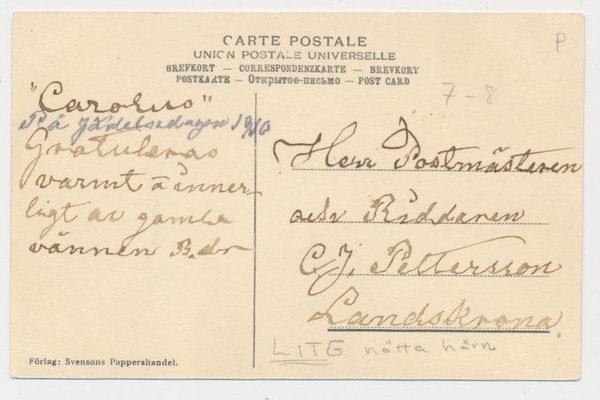 CARTE POSTALE
UNION POSTALE UNIVERSELLE
BREFKORT — CORRESPONDENZKARTE — BREVKORT
POSTKARTE — Открытое-письмо — POST CARD
P
7-8
"Carolus"
På födelsedagen 1910
Gratuleras
varmt å inner-
ligt av gamle
vännen
Herr Postmästeren
och Riddaren
C. J. Pettersson
Landskrona
LITE nötta hörn
Förlag: Svensons Pappershandel.